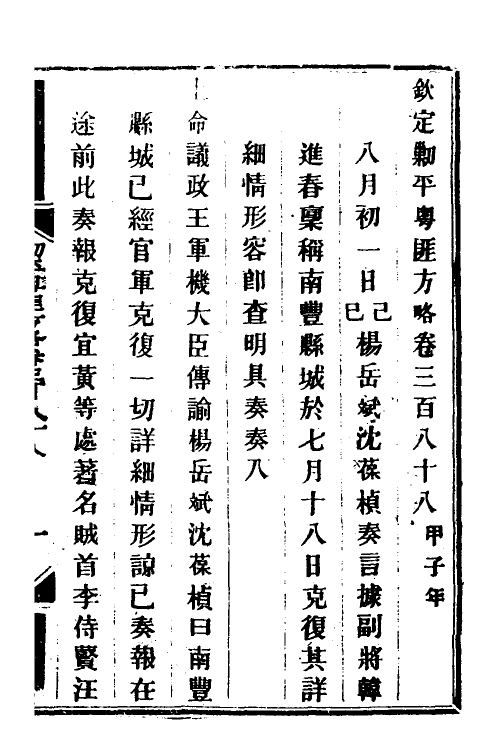 欽定剿平粤匪方略卷三百八十八 甲子年
八月初一日己巳楊岳斌沈葆楨奏言據副將韓
進春稟稱南豐縣城於七月十八日克復其詳
細情形容卽查明具奏奏入
命議政王軍機大臣傳諭楊岳斌沈葆楨曰南豐
縣城已經官軍克復一切詳細情形諒已奏報在
途前此奏報克復宜黃等處著名賊首李侍賢汪